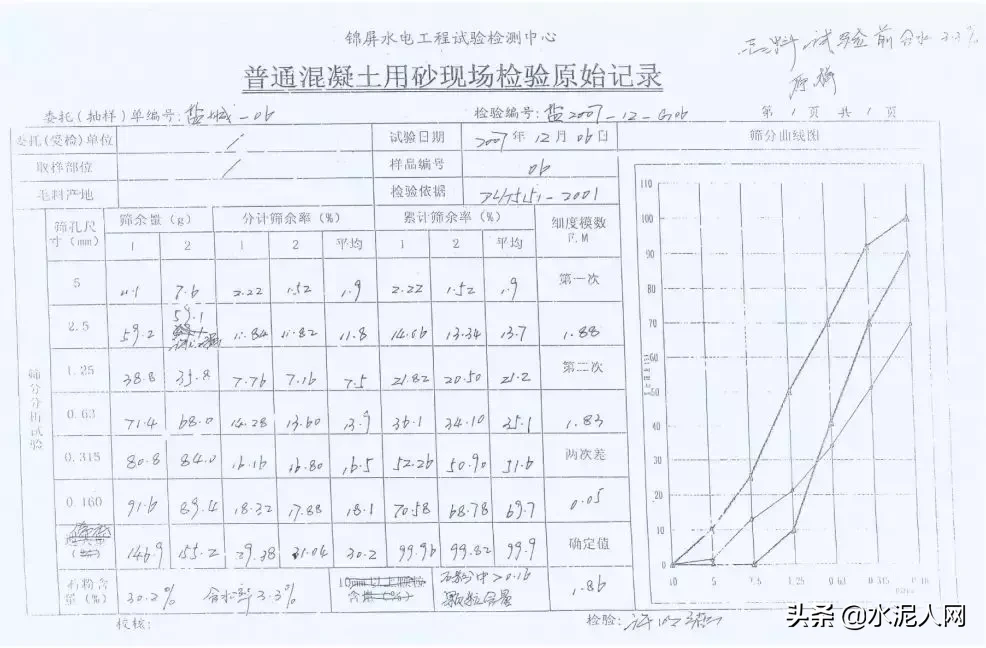 锦屏水电工程试验检测中心
试验前含水3.3%
原样
普通混凝土用砂现场检验原始记录
委托(抽样)单编号:盐城-06 检验编号:盐2007-12-G06 第1页 共1页
委托(受检)单位 / 试验日期 2007年12月06日 筛分曲线图
取样部位 / 样品编号 06
毛料产地 检验依据 DL/T5151-2001
筛分析试验
筛孔尺寸(mm) 筛余量(g) 分计筛余率(%) 累计筛余率(%) 细度模数F.M
1 2 1 2 平均 1 2 平均
5 11.1 7.6 2.22 1.52 1.9 2.22 1.52 1.9 第一次
2.5 59.2 59.1 11.84 11.82 11.8 14.06 13.34 13.7 1.88
1.25 38.8 35.8 7.76 7.16 7.5 21.82 20.50 21.2 第二次
0.63 71.4 68.0 14.28 13.60 13.9 36.1 34.10 35.1 1.83
0.315 80.8 84.0 16.16 16.80 16.5 52.26 50.90 51.6 两次差
0.160 91.6 89.4 18.32 17.88 18.1 70.58 68.78 69.7 0.05
146.9 155.2 29.38 31.04 30.2 99.96 99.82 99.9 确定值
石粉含量(%) 30.2% 含水率3.3% 石粉中>0.16颗粒含量 1.86
110
100
90
80
70
60
50
40
30
20
10
0
10 5 2.5 1.25 0.63 0.315 0.16
校核: 检验:
头条 @水泥人网